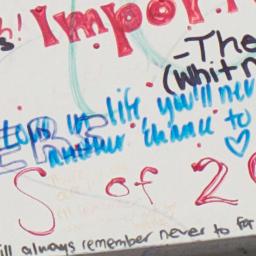 h! Impor
-The
(Whitn
in life you'll nev
another chance to
ERS
S of 2
ill always remember never to for